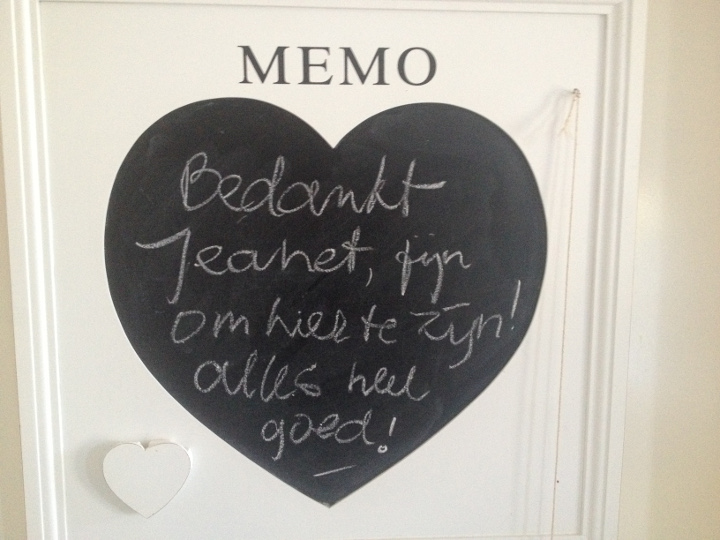 MEMO
Bedankt
Jeanet, fijn
om hier te zijn!
alles heel
goed!